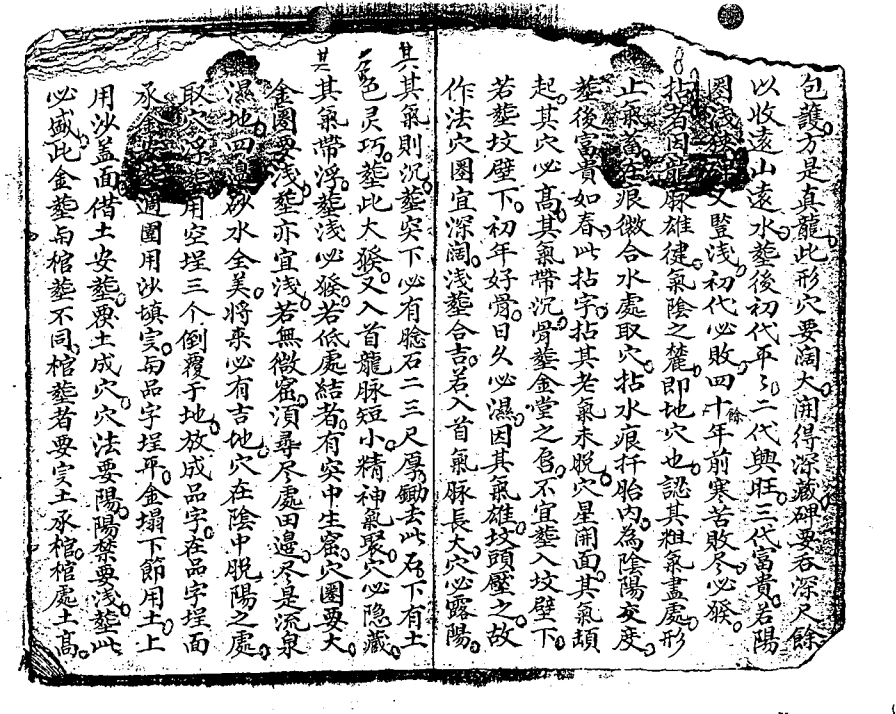 包護。方是真龍。此形穴要闊大。開得深藏。碑要吞深尺餘
以收遠山遠水。葬後初代平々。二代興旺。三代富貴。若陽
圈淺。又豎淺。初代必敗。四十餘年前寒苦敗尽必發。
拈者因龍脉雄健。氣陰之麓。即地穴也。認其粗氣盡處。形
止氣蓄。在痕微合水處取穴。拈水痕扦胎內。為陰陽交度。
葬後富貴如春。此拈字。拈其老氣未脫。穴星開面。其氣頡
起。其穴必高。其氣帶沉。骨葬金堂之后。不宜葬入坟壁下。
若葬坟壁下。初年好骨。日久必濕。因其氣雄。坟頭壓之。故
作法穴圈宜深闊。淺葬合吉。若入首氣脉長大。穴必露陽。
其其氣則沉。葬突下必有脸石二三尺厚。鋤去此石。下有土
五色灵巧。葬此大發。又入首龍脉短小。精神氣聚。穴必隐藏。
其其氣帶浮。葬淺必發。若低處結者。有突中生窟。穴圈要大。
金圈要淺。葬亦宜淺。若無微窟。須尋尽處田邊。尽是流泉
濕地。四邊砂水全美。將來必有吉地。穴在陰中脫陽之處。
取穴浮葬。用空埕三个倒覆于地。放成品字。在品字埕面
承金安葬。週圍用沙填实。与品字埕平。金塌下節用土。上
用沙盖面。借土安葬。要土成穴。穴法要陽。陽禁要淺葬。此
必盛。此金葬与棺葬不同。棺葬者要实土承棺。棺處土高。